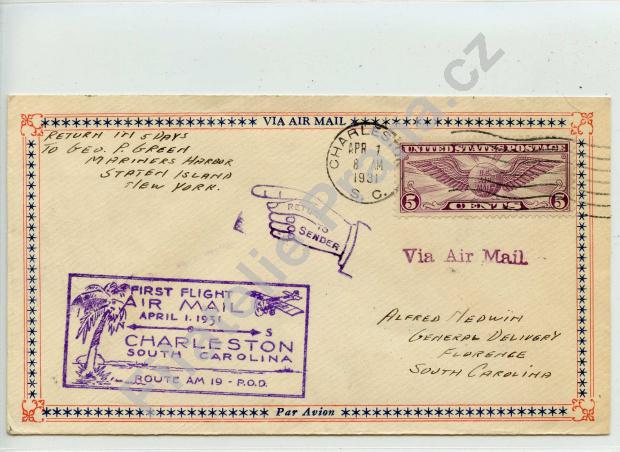 VIA AIR MAIL
RETURN IN 5 DAYS
TO GEO. P. GREEN
MARINERS HARBOR
STATEN ISLAND
NEW YORK.
CHARLEST
APR 1
8 M
1931
S. C.
UNITED STATES POSTAGE
5 CENTS 5
RETURN
TO
SENDER
Via Air Mail
FIRST FLIGHT
AIR MAIL
APRIL 1, 1931
S
CHARLESTON
SOUTH CAROLINA
ROUTE AM 19 - P.O.D.
ALFRED NEDWIN
GENERAL DELIVERY
FLORENCE
SOUTH CAROLINA
Par Avion
Atelier-Praha.cz